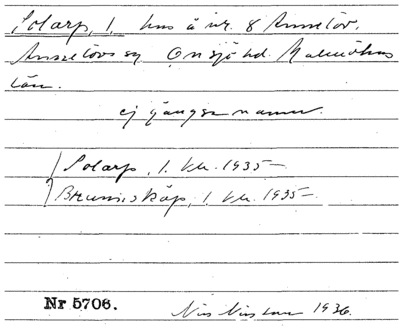 Solarp, 1. hus å nr. 8 Annelöv,
Annelövs sn Onsjö hd. Malmöhus
län.
ej gängse namn.
Solarp, 1. kv. 1935
Brunnskåp, 1 kv. 1935
Nr 5706. 1936.